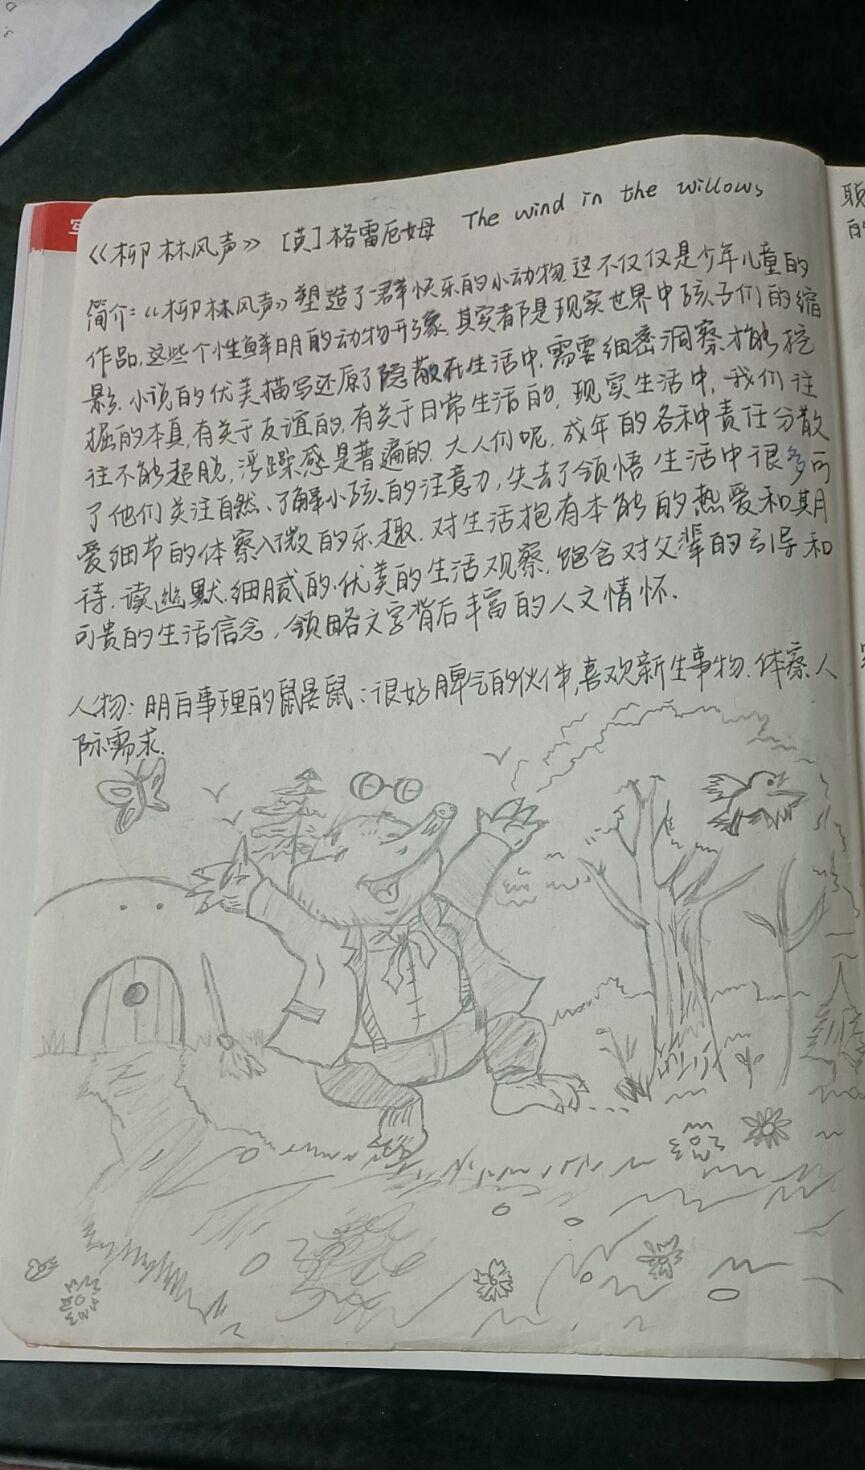 《柳林风声》 [英]格雷厄姆 The wind in the willows
简介:《柳林风声》塑造了一群快乐的小动物.这不仅仅是少年儿童的
作品,这些个性鲜明的动物形象.其实都是现实世界中孩子们的缩
影.小说的优美描写还原了隐散在生活中,需要细密洞察才能挖
掘的本真,有关于友谊的,有关于日常生活的,现实生活中,我们往
往不能超脱,浮躁感是普遍的.大人们呢,成年的各种责任分散
了他们关注自然、了解小孩的注意力,失去了领悟生活中很多可
爱细节的体察入微的乐趣.对生活抱有本能的热爱和期
待.读幽默.细腻的.优美的生活观察.饱含对父辈的引导和
可贵的生活信念,领略文字背后丰富的人文情怀.
人物:明白事理的鼠鼹鼠:很好脾气的伙伴,喜欢新生事物.体察人
际需求.
写
聪
的